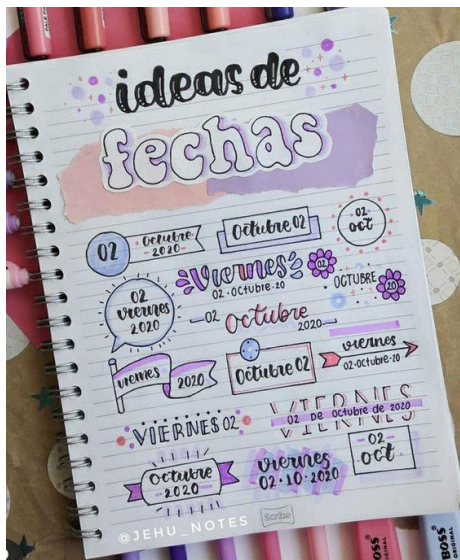 ideas de
fechas
02
octubre
-2020-
Octubre 02
-02-
oct
Viernes
02
02·Octubre·20
02
viernes
2020
OCTUBRE
20
-02
Octubre
2020-
viernes
2020
Octubre 02
viernes
02-OCTUBRE-20
VIERNES 02
VIERNES
02 DE octubre de 2020
octubre
-2020-
viernes
02·10·2020
-02-
oct
@JEHU_NOTES
Scribe
BOSS
ORIGINAL
BOSS
ORIGINAL